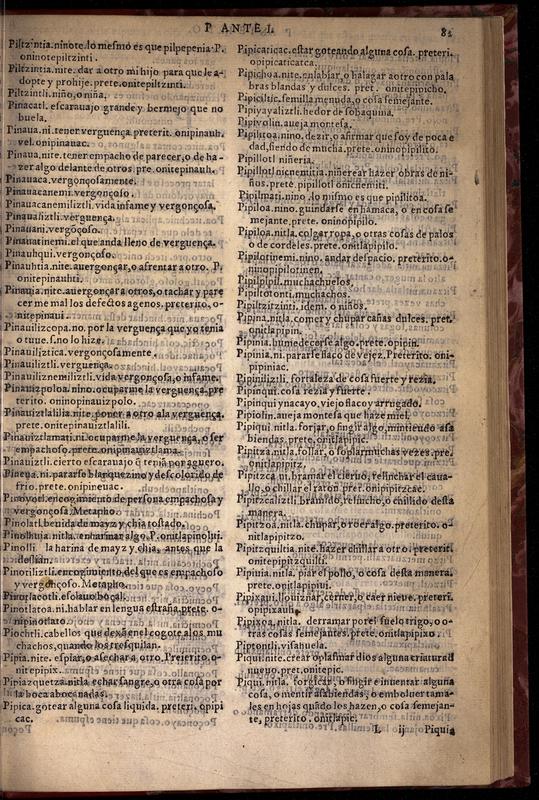 P ANTE I. 82
Piltzintia.ninote.lo mesmo es que pilpepenia. P.
oninotepiltzinti.
Piltzintia.nite. dar a otro mi hijo para que le a-
dopte y prohije. prete. onitepiltzinti.
Piltzintli. niño, o niña.
Pinacatl. escarauajo grande y bermejo que no
buela.
Pinaua.ni. tener verguença. preterit. onipinauh.
vel. onipinauac.
Pinaua.nite. tener empacho de parecer, o de ha-
zer algo delante de otros. pre. onitepinauh.
Pinauaca. vergonçosamente.
Pinauacanemi. vergonçoso.
Pinauacanemiliztli. vida infame y vergonçosa.
Pinaualiztli. verguença.
Pinauani. vergõçoso.
Pinauatinemi. el que anda lleno de verguença.
Pinauhqui. vergonçoso.
Pinauhtia.nite. auergonçar, o afrentar a otro. P.
onitepinauhti.
Pinauia.nite. auergonçar a otros, o tachar y pare
cer me mal los defectos agenos. preterito, o-
nitepinaui.
Pinauilizcopa. no. por la verguença que yo tenia
o tuue. s. no lo hize.
Pinauiliztica. vergonçosamente.
Pinauiliztli. verguença.
Pinauiliznemiliztli. vida vergonçosa, o infame.
Pinauizpoloa. nino. ocuparme la verguença. pre
terito. oninopinauizpolo.
Pinauiztlalilia. nite. poner a otro a la verguença.
prete. onitepinauiztlalili.
Pinauiztlamati. ni. ocuparme la verguença, o ser
empachoso. prete. onipinauiztlama.
Pinauiztli. cierto escarauajo q̃ tenia por aguero.
Pineua. ni. pararse blanquezino y descolorido de
frio. prete. onipineuac.
Pinoyotl. encogimiento de persona empachosa y
vergonçosa. Metapho.
Pinolatl. beuida de mayz y chia tostado.
Pinolhuia. nitla. enharinar algo. P. onitlapinolhui.
Pinolli. la harina de mayz y chia, antes que la
deslian.
Pinotiliztli. encogimiento del que es empachoso
y vergonçoso. Metapho.
Pinotlacotli. esclauo boçal.
Pinotlatoa. ni. hablar en lengua estraña. prete. o-
nipinotlato.
Piochtli. cabellos que dexã en el cogote a los mu
chachos, quando los tresquilan.
Pipia. nite. espiar, o asechar a otro. Preterito. o-
nitepipix.
Pipiazquetza. nitla. echar sangre, o otra cosa por
la boca a bocanadas.
Pipica. gotear alguna cosa liquida. preteri. opipi
cac.
Pipicaticac. estar goteando alguna cosa. preteri.
opipicaticatca.
Pipichoa. nite. enlabiar, o halagar a otro con pala
bras blandas y dulces. pret. onitepipicho.
Pipiciltic. semilla menuda, o cosa semejante.
Pipiyayaliztli. hedor de sobaquina.
Pipiyolin. aueja montesa.
Pipilitoa. nino. dezir, o afirmar que soy de poca e
dad, siendo de mucha. prete. oninopipilito.
Pipillotl niñeria.
Pipillotl nicnemitia. niñerear hazer obras de ni-
ños. prete. pipillotl onicnemiti.
Pipilmati. nino. lo mismo es que pipilitoa.
Pipiloa. nino. guindarse en hamaca, o en cosa se
mejante. prete. oninopipilo.
Pipiloa. nitla. colgar ropa, o otras cosas de palos
o de cordeles. prete. onitlapipilo.
Pipilotinemi. nino. andar despacio. preterito. o-
ninopipilotinen.
Pipilpipil. muchachuelos.
Pipiltotonti. muchachos.
Pipiltzitzinti. idem. o niños.
Pipina. nitla. comer y chupar cañas dulces. pret.
onitlapipin.
Pipinia. humedecerse algo. prete. opipin.
Pipinia. ni. pararse flaco de vejez. Preterito. oni-
pipiniac.
Pipiniliztli. fortaleza de cosa fuerte y rezia.
Pipinqui. cosa rezia y fuerte.
Pipinqui ynacayo. viejo flaco y arrugado.
Pipiolin. aueja montesa que haze miel.
Pipiqui. nitla. forjar, o fingir algo, mintiendo a sa
biendas. prete. onitlapipic.
Pipitza. nitla. follar, o soplar muchas vezes. pre.
onitlapipitz.
Pipitzca. ni. bramar el cieruo, relinchar el caua-
llo, o chillar el raton. prer. onipipitzcac.
Pipitzcaliztli. bramido, relincho, o chillido desta
manera.
Pipitzoa. nitla. chupar, o roer algo. preterito. o-
nitlapipitzo.
Pipitzquiltia. nite. hazer chillar a otro. preterit.
onitepipitzquilti.
Pipiuia. nitla. piar el pollo, o cosa desta manera.
prete. onitlapipiui.
Pipixaui. llouiznar, cerner, o caer nieue. preteri.
opipixauh.
Pipixoa. nitla. derramar por el suelo trigo, o o-
tras cosas semejantes. prete. onitlapipixo.
Piptontli. visahuela.
Piqui. nite. crear o plasmar dios alguna criatura d
nueuo. pret. onitepic.
Piqui. nitla. forgicar, o fingir e inuentar alguna
cosa, o mentir a sabiendas, o emboluer tama-
les en hojas quãdo los hazen, o cosa semejan-
te. preterito. onitlapic.
L ij Piquia